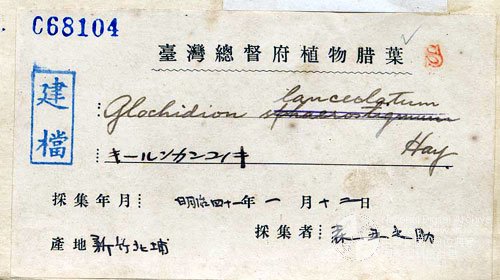 C68104
臺灣總督府植物腊葉
建檔
lanceolatum
Glochidion sphaerostigmum
Hay
キールンカンコノキ
採集年月 明治四十一年 一 月 十二日
採集者 森 丑之助
產地 新竹北埔